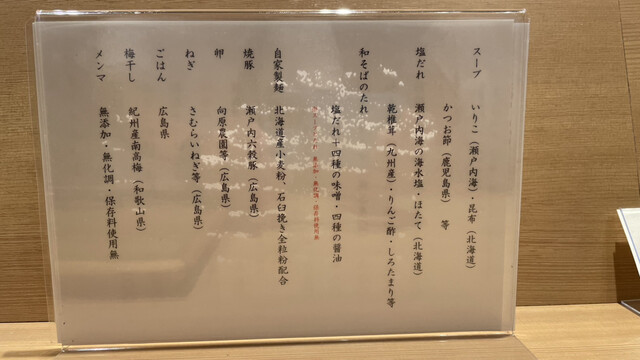 スープ　いりこ（瀬戸内海）・昆布（北海道）
かつお節（鹿児島県）　等
塩だれ　瀬戸内海の海水塩・ほたて（北海道）
乾椎茸（九州産）・りんご酢・しろたまり等
和そばのたれ
塩だれ＋四種の味噌・四種の醤油
無添加・無化調・保存料使用無
自家製麺　北海道産小麦粉、石臼挽き全粒粉配合
焼豚　瀬戸内六穀豚（広島県）
卵　向原農園等（広島県）
ねぎ　さむらいねぎ等（広島県）
ごはん　広島県
梅干し　紀州産南高梅（和歌山県）
メンマ　無添加・無化調・保存料使用無